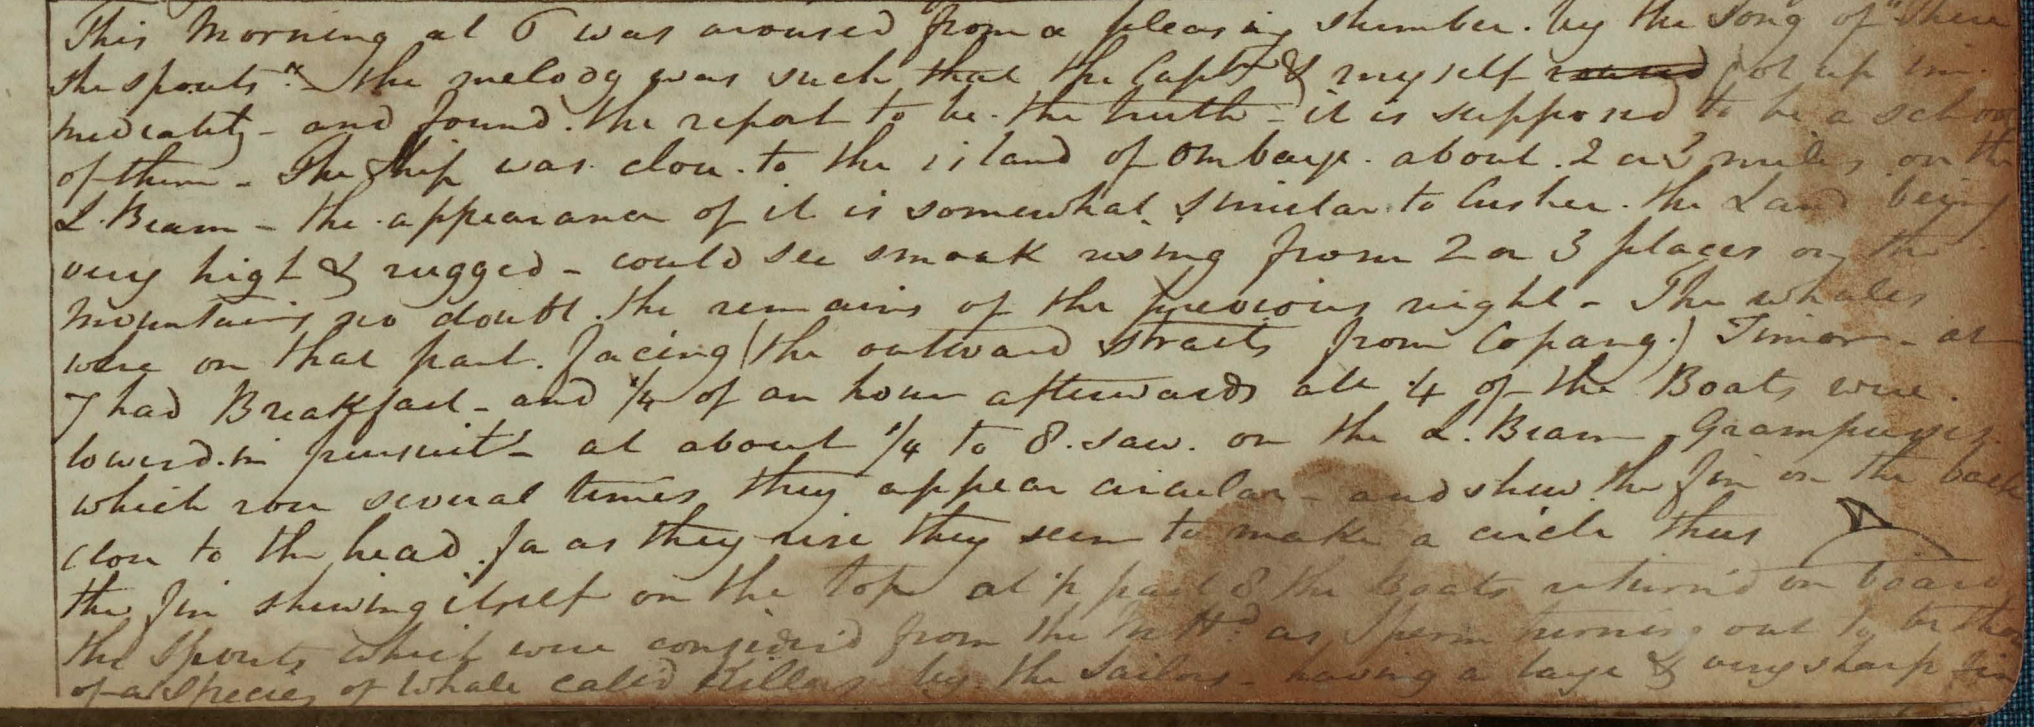 This Morning at 6 was aroused from a pleasing slumber. by the Song of "There
she spouts" - the melody was such that the Capt & myself got up im-
mediately - and found. the report to be. the truth - it is supposed to be a school
of them - The Ship was close. to the island of Ombaye. about. 2 or 3 miles on the
L. Beam - the appearance of it is somewhat similar to the Land being
very high & rugged - could see smoak rising from 2 or 3 places on the
Mountains no doubt the remains of the previous night - The whales
were on that part. facing (the outward Straits from Copang.) Timor - at
7 had Breakfast - and 1/4 of an hour afterwards all 4 of the Boats were.
lowerd. in pursuit - at about 1/4 to 8. saw. on the L. Beam Grampusses.
which rose several times they appear circular - and shew. the fin on the back
close to the head. for as they rise they seem to make a circle thus
the fin shewing itself on the top at past 8 the Boats return'd on board
the Spouts which were consider'd from the Mt Hd as Sperm turning out to be those
of a Species of Whale called Killers by the Sailors - having a large & very sharp fin